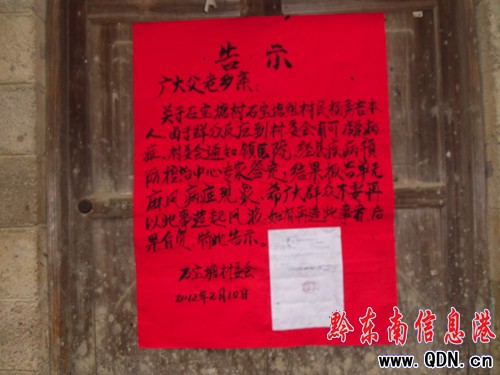 告示
广大父老乡亲：
关于石宝塘村石宝塘组村民
人,由于群众反应到村委会有可 病
症。村委会通知 医院,经县疾病预
防控 中心专家 ,结果报告单无
麻风病症现象,希广大群众不要再
以此事造起风波,如有再造此事者,后
果自负,特此告示。
石宝塘村委会
2012年2月10日
黔东南信息港
www.QDN.cn